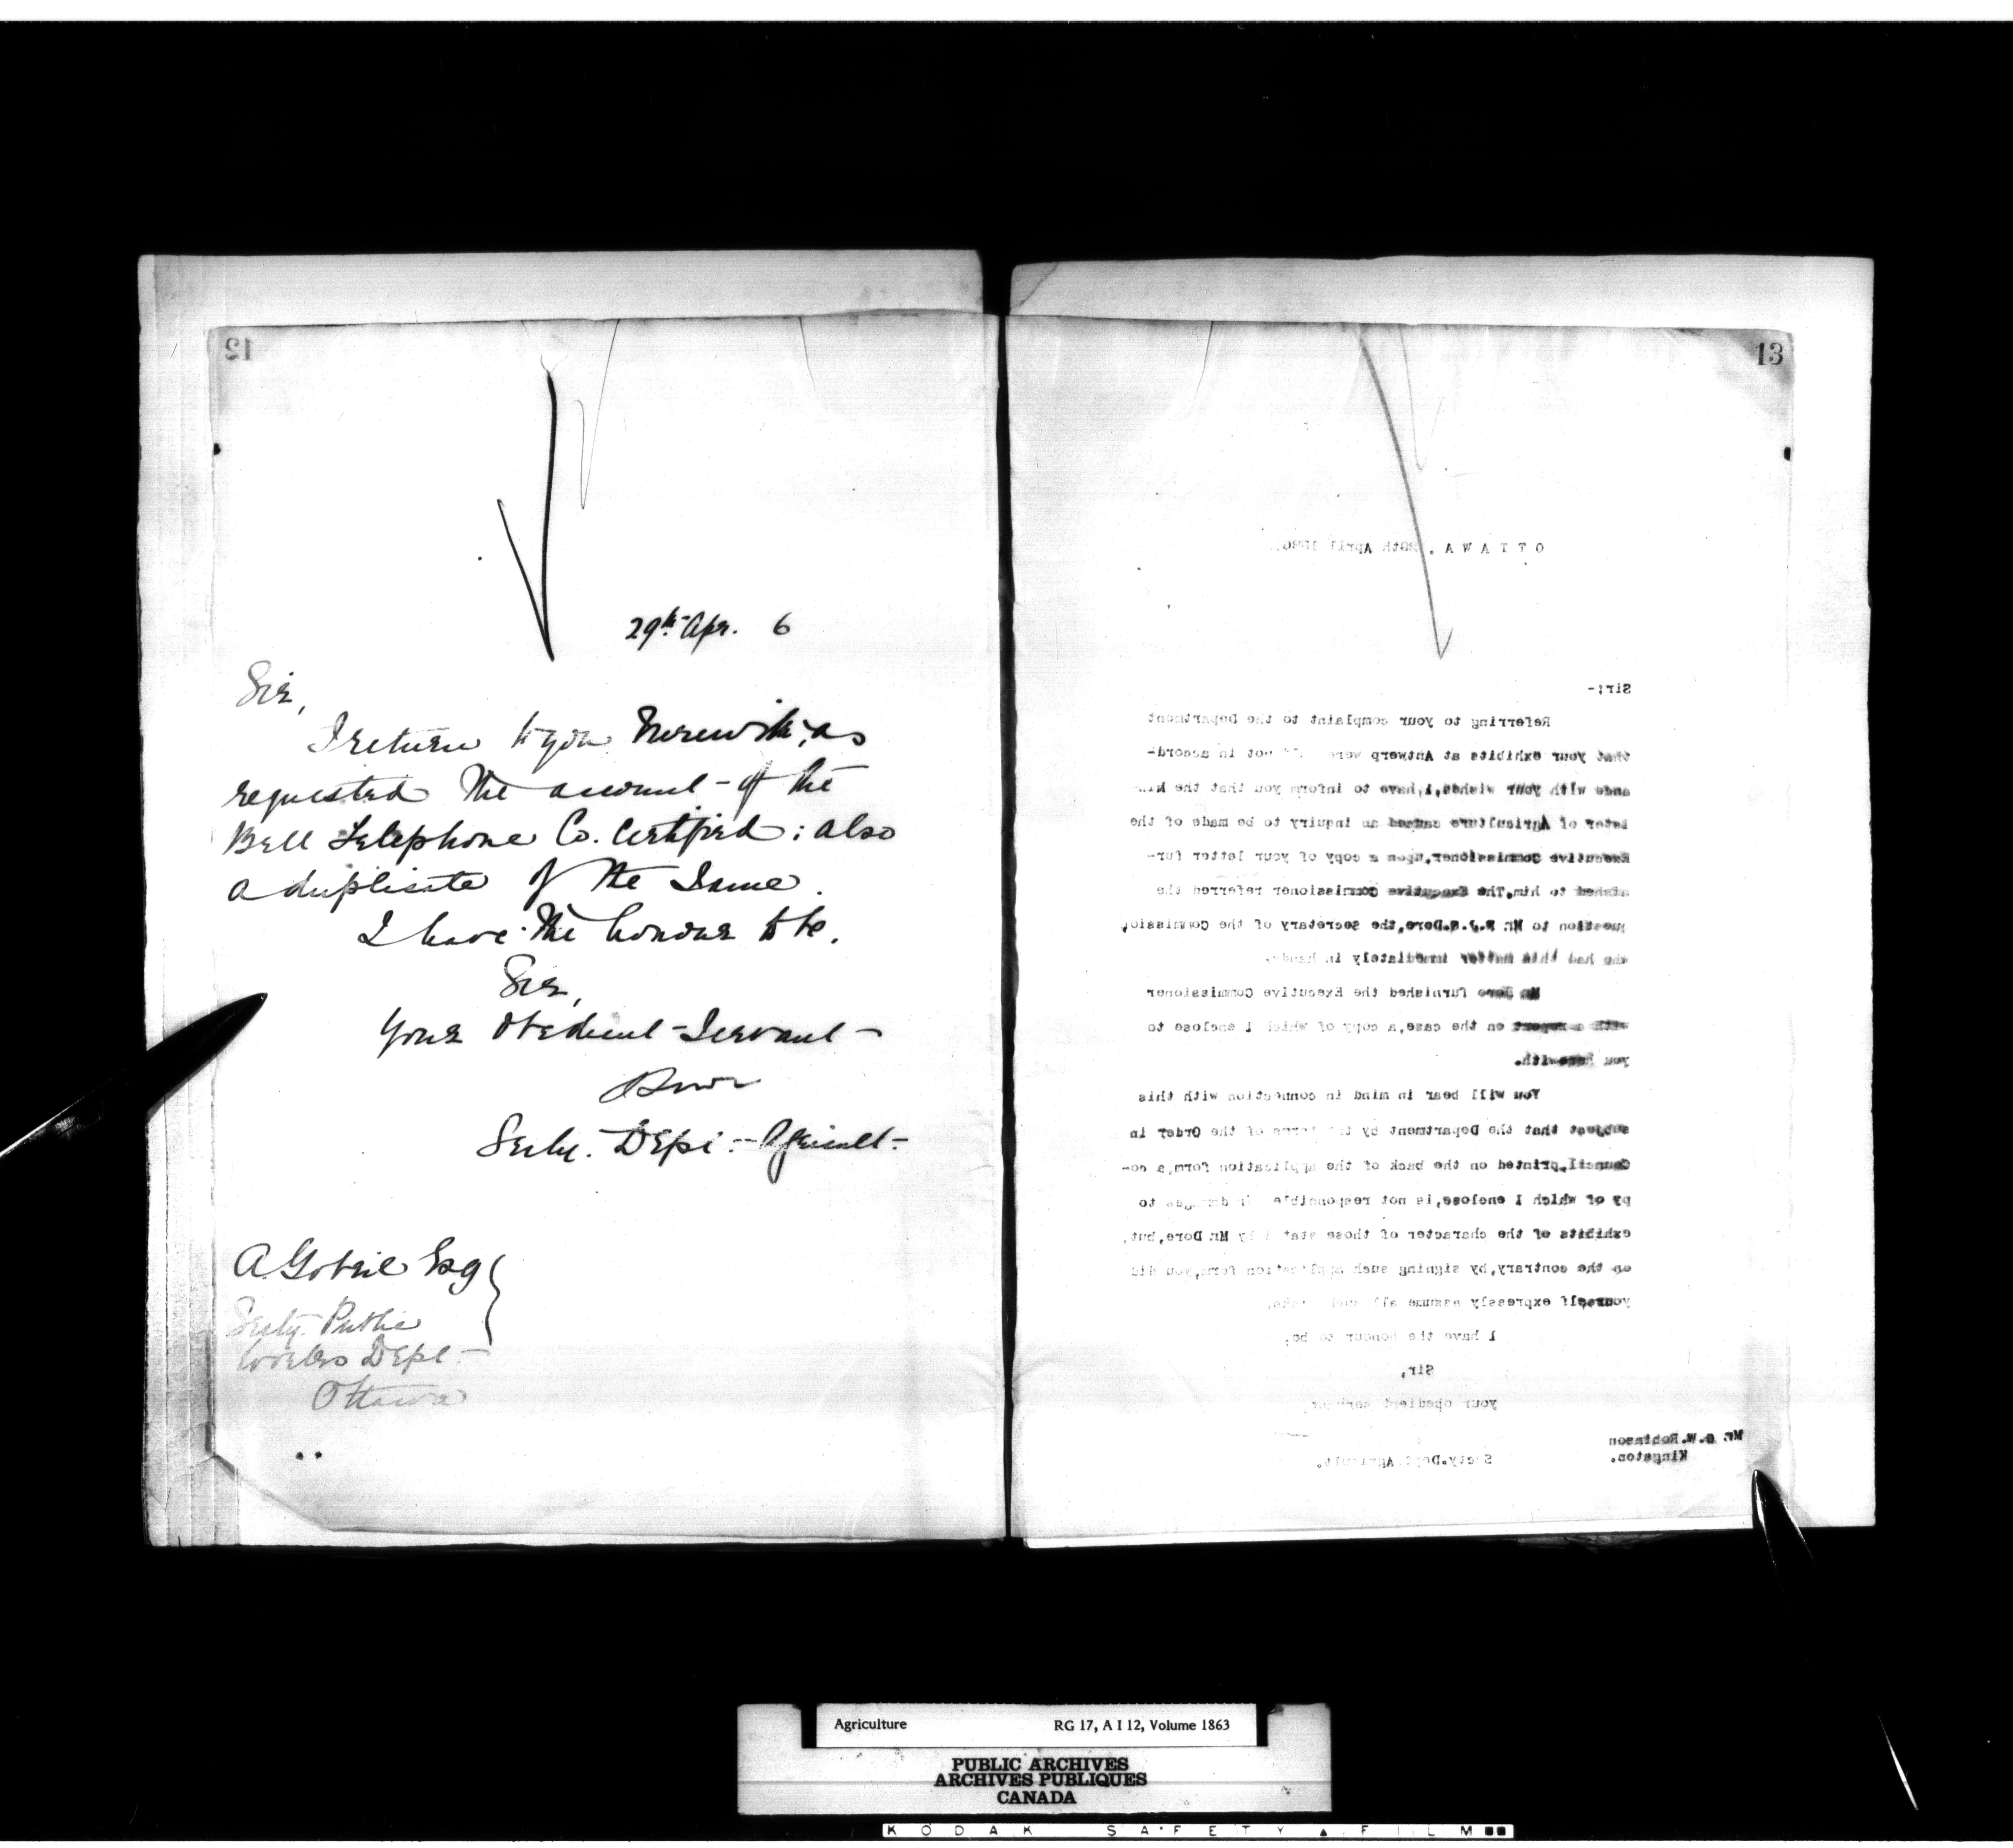 12
29th Apr. 6
Sir,
I return to you herewith, as
requested the account of the
Bell Telephone Co. Certified; also
a duplicate of the same.
I have the honour to be,
Sir,
Your Obedient Servant
Secty. Dept. Agricult.
A Gobeil Esq
Secty. Public
Works Dept.
Ottawa
13
OTTAWA, April 1886.
Sir;-
Referring to your complaint to the Department
that your exhibits at Antwerp were not in accord-
ance with your wishes, I have to inform you that the Min-
ister of Agriculture caused an inquiry to be made of the
Executive Commissioner, upon a copy of your letter fur-
nished to him. The Executive Commissioner referred the
question to Mr. Dore, the Secretary of the Commission,
who had this matter immediately in hand.
Mr Dore furnished the Executive Commissioner
with a report on the case, a copy of which I enclose to
you herewith.
You will bear in mind in connection with this
subject that the Department by the terms of the Order in
Council, printed on the back of the application form, a co-
py of which I enclose, is not responsible damages to
exhibits of the character of those stated by Mr. Dore, but,
on the contrary, by signing such application form, you did
yourself expressly assume all such risks.
I have the honour to be,
Sir,
your obedient servant,
Secty. Dept. Agricult.
Mr. G. W. Robinson
Kingston.
Agriculture RG 17, A I 12, Volume 1863
PUBLIC ARCHIVES
ARCHIVES PUBLIQUES
CANADA
KODAK SAFETY FILM